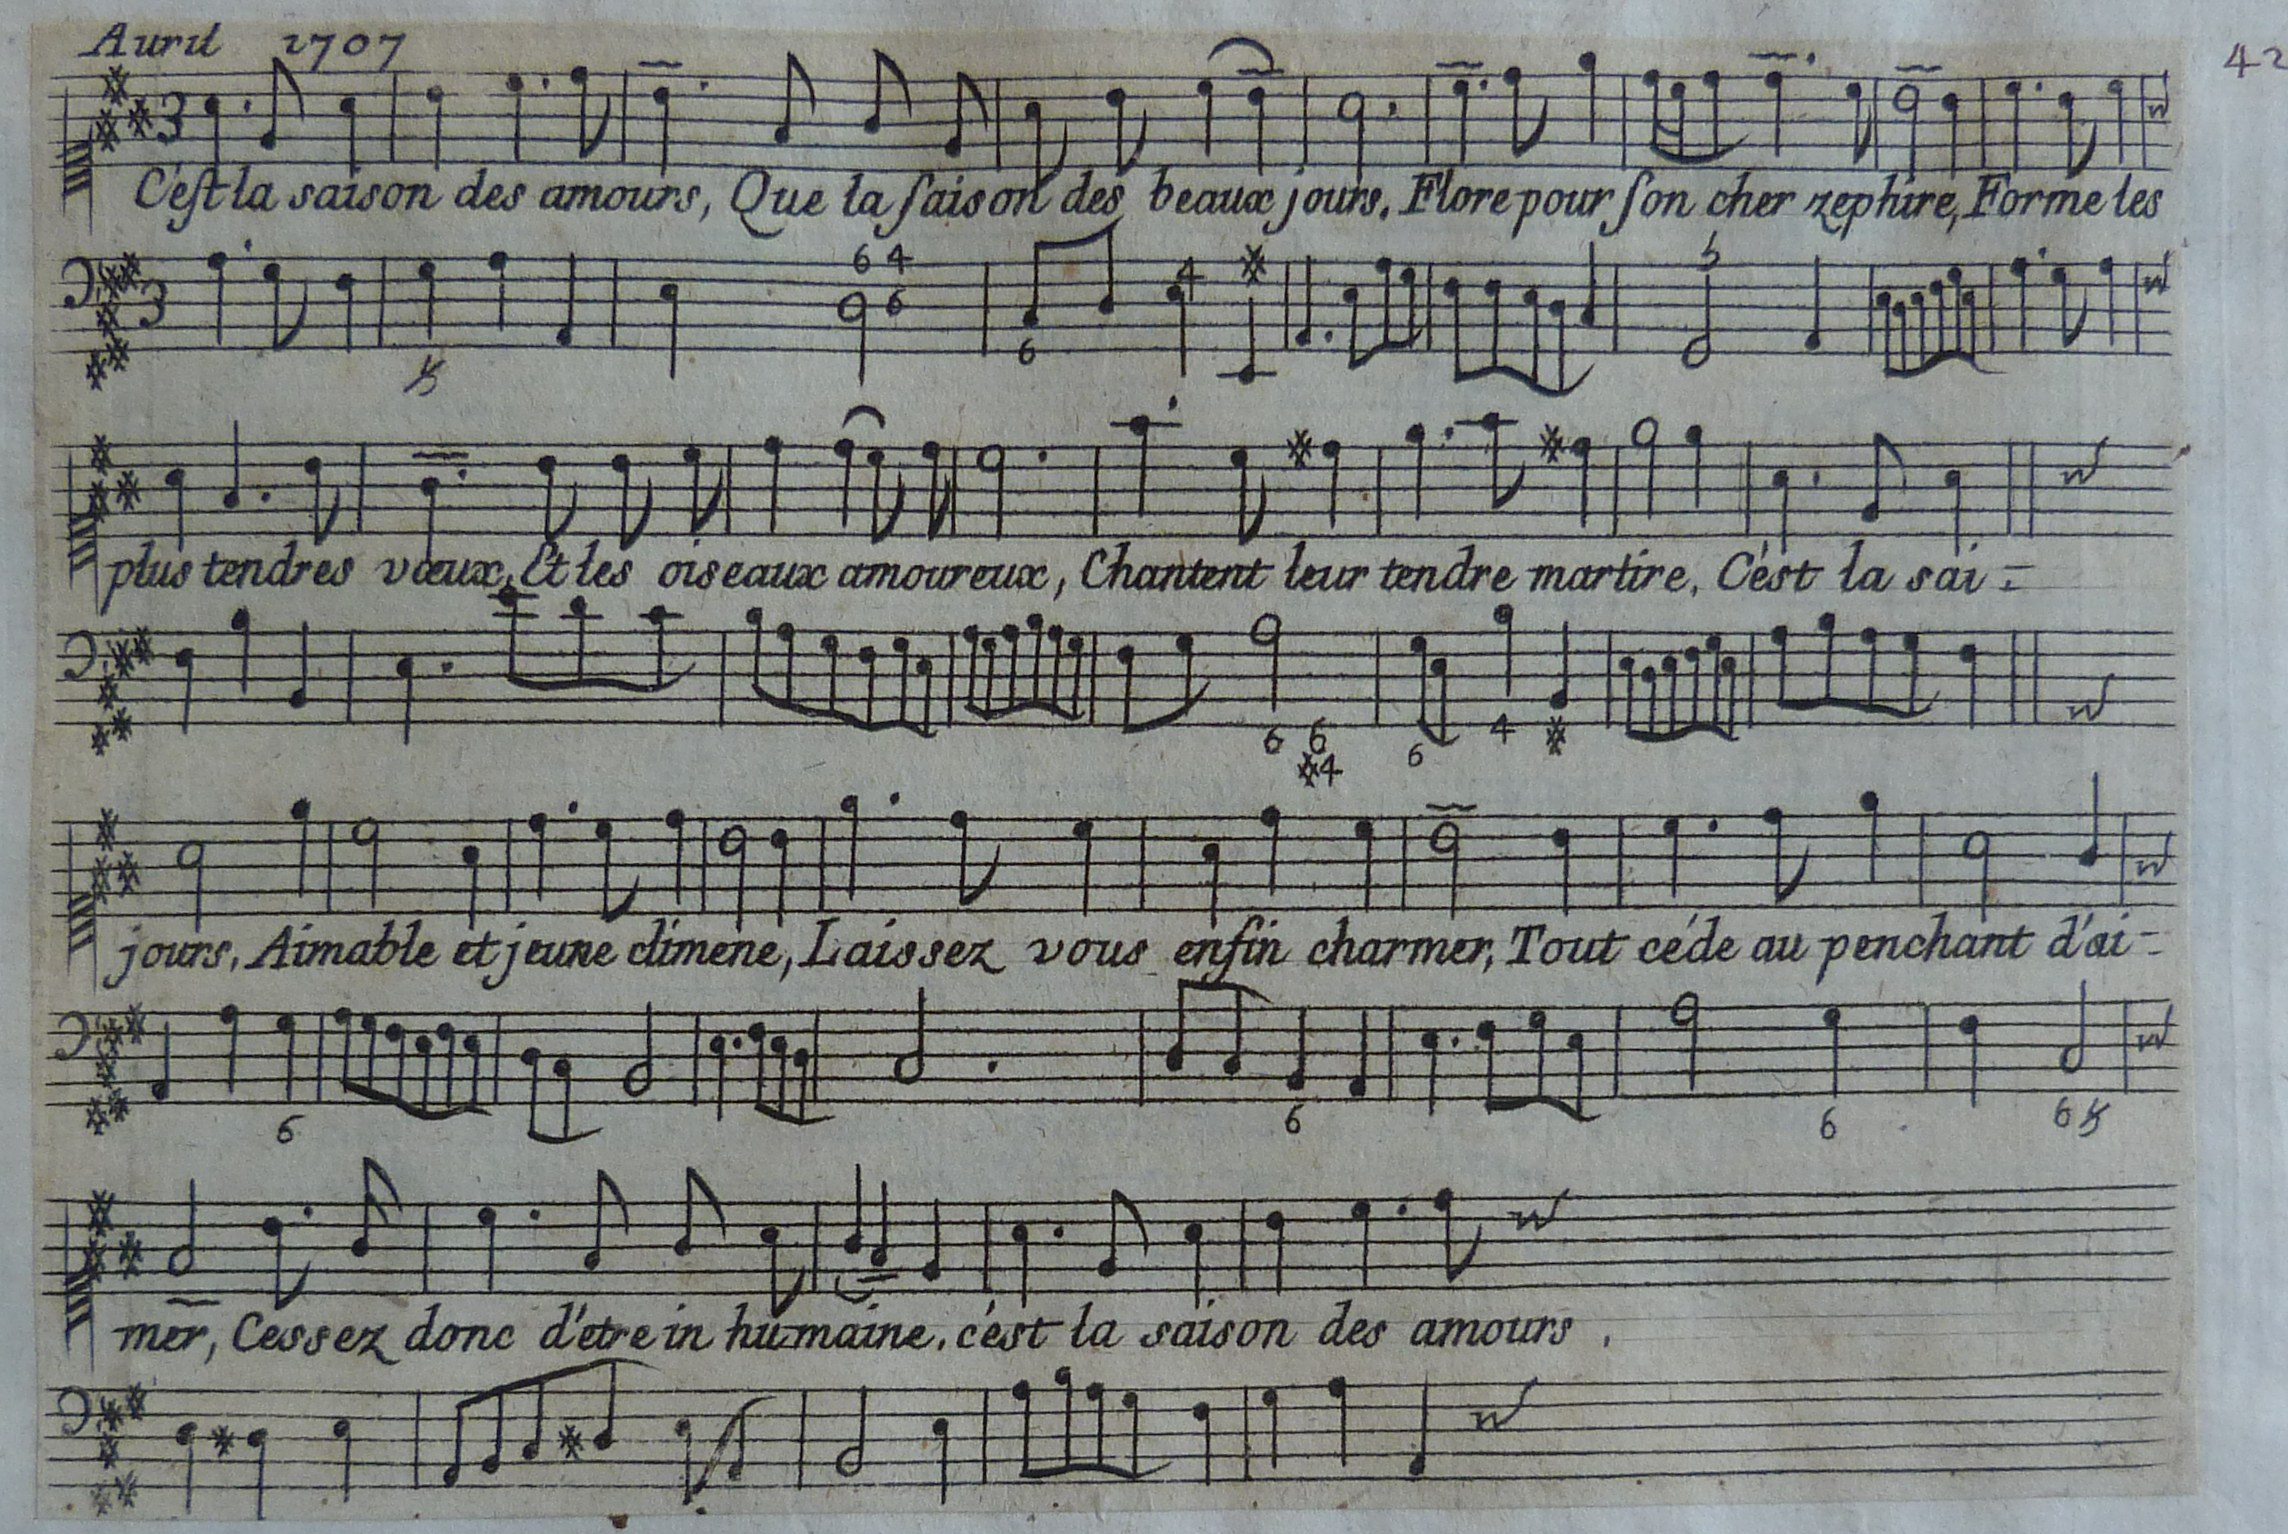 Avril 1707
42
3
C'est la saison des amours, Que la ſaison des beaux jours. Flore pour ſon cher zephire, Forme les
3 6 4 6 6 4 5
plus tendres vœux, Et les oiseaux amoureux, Chantent leur tendre martire. C'ést la sai =
6 6 4 6 4
jours. Aimable et jeune climene, Laissez vous enfin charmer, Tout céde au penchant d'ai =
6 6 6 6
mer, Cessez donc d'etre in humaine. c'ést la saison des amours.